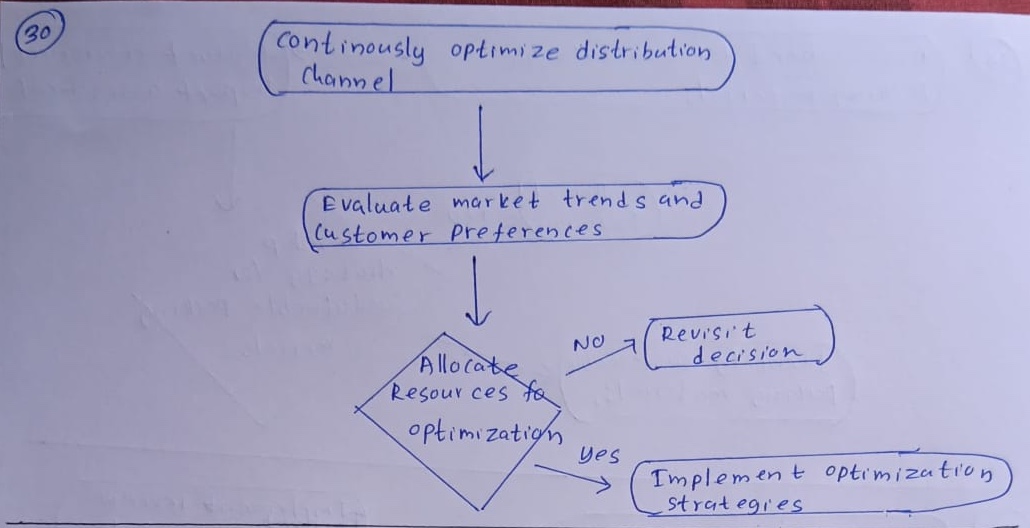 30
Continously optimize distribution
Channel
Evaluate market trends and
Customer Preferences
Allocate
Resources to
optimization
NO
Revisit
decision
yes
Implement optimization
strategies